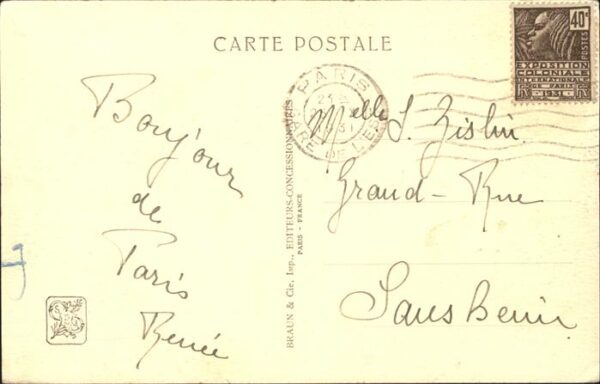 CARTE POSTALE
Bonjour
de
Paris
Renée
BRAUN & Cie, Imp., EDITEURS-CONCESSIONNAIRES
PARIS - FRANCE
PARIS
GARE DE L'EST
40c
POSTES
EXPOSITION
COLONIALE
INTERNATIONALE
DE PARIS
1931
Melle S. Zislin
Grand-Rue